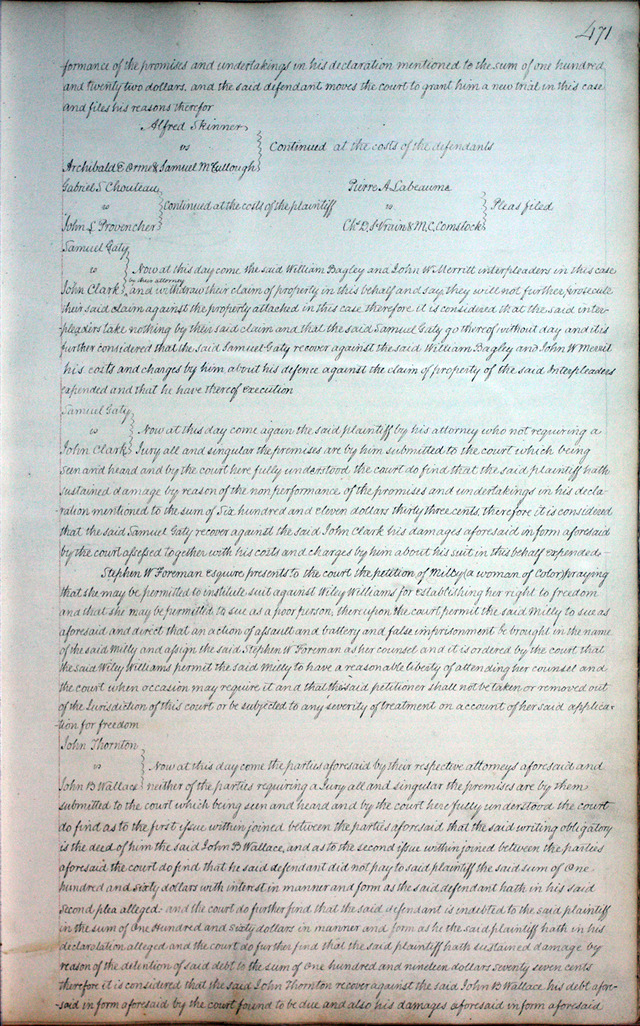 471
formance of the promises and undertakings in his declaration mentioned to the sum of one hundred
and twenty two dollars, and the said defendant moves the court to grant him a new trial in this case
and files his reasons therefor
Alfred Skinner
vs Continued at the costs of the defendants
Archibald E Orme & Samuel McCullough
Gabriel S. Chouteau
vs Continued at the costs of the plaintiff
John L. Provencher
Pierre A Labeaume
vs Pleas filed
Chs D. St Vrain & M. C. Comstock
Samuel Gaty
vs Now at this day come the said William Bagley and John W Merrill interpleaders in this case
by their attorney
John Clark and withdraw their claim of property in this behalf and say, they will not further prosecute
their said claim against the property attached in this case therefore it is considered that the said inter-
pleaders take nothing by their said claim and that the said Samuel Gaty go thereof without day and it is
further considered that the said Samuel Gaty recover against the said William Bagley and John W Merrill
his costs and charges by him about his defence against the claim of property of the said Interpleaders
expended and that he have thereof execution
Samuel Gaty
vs Now at this day come again the said plaintiff by his attorney who not requiring a
John Clark Jury all and singular the premises are by him submitted to the court which being
seen and heard and by the court here fully understood the court do find that the said plaintiff hath
sustained damage by reason of the non performance of the promises and undertakings in his decla-
ration mentioned to the sum of Six hundred and eleven dollars thirty three cents therefore it is considered
that the said Samuel Gaty recover against the said John Clark his damages aforesaid in form aforesaid
by the court assessed together with his costs and charges by him about his suit in this behalf expended-
Stephen W Foreman esquire presents to the court the petition of Milly (a woman of Color) praying
that she may be permitted to institute suit against Wiley Williams for establishing her right to freedom
and that she may be permitted to sue as a poor person, thereupon the court permit the said Milly to sue as
aforesaid and direct that an action of assault and battery and false imprisonment be brought in the name
of the said Milly and assign the said Stephen W Foreman as her counsel and it is ordered by the court that
the said Wiley Williams permit the said Milly to have a reasonable liberty of attending her counsel and
the court when occasion may require it and that the said petitioner shall not be taken or removed out
of the Jurisdiction of this court or be subjected to any severity of treatment on account of her said applica-
tion for freedom
John Thornton
vs Now at this day come the parties aforesaid by their respective attorneys aforesaid and
John B Wallace neither of the parties requiring a Jury all and singular the premises are by them
submitted to the court which being seen and heard and by the court here fully understood the court
do find as to the first issue within joined between the parties aforesaid that the said writing obligatory
is the deed of him the said John B Wallace, and as to the second issue within joined between the parties
aforesaid the court do find that he said defendant did not pay to said plaintiff the said sum of One
hundred and sixty dollars with interest in manner and form as the said defendant hath in his said
second plea alleged- and the court do further find that the said defendant is indebted to the said plaintiff
in the sum of One Hundred and Sixty dollars in manner and form as he the said plaintiff hath in his
declaration alleged and the court do further find that the said plaintiff hath sustained damage by
reason of the detention of said debt to the sum of One hundred and nineteen dollars seventy seven cents
therefore it is considered that the said John Thornton recover against the said John B Wallace his debt afore-
said in form aforesaid by the court found to be due and also his damages aforesaid in form aforesaid